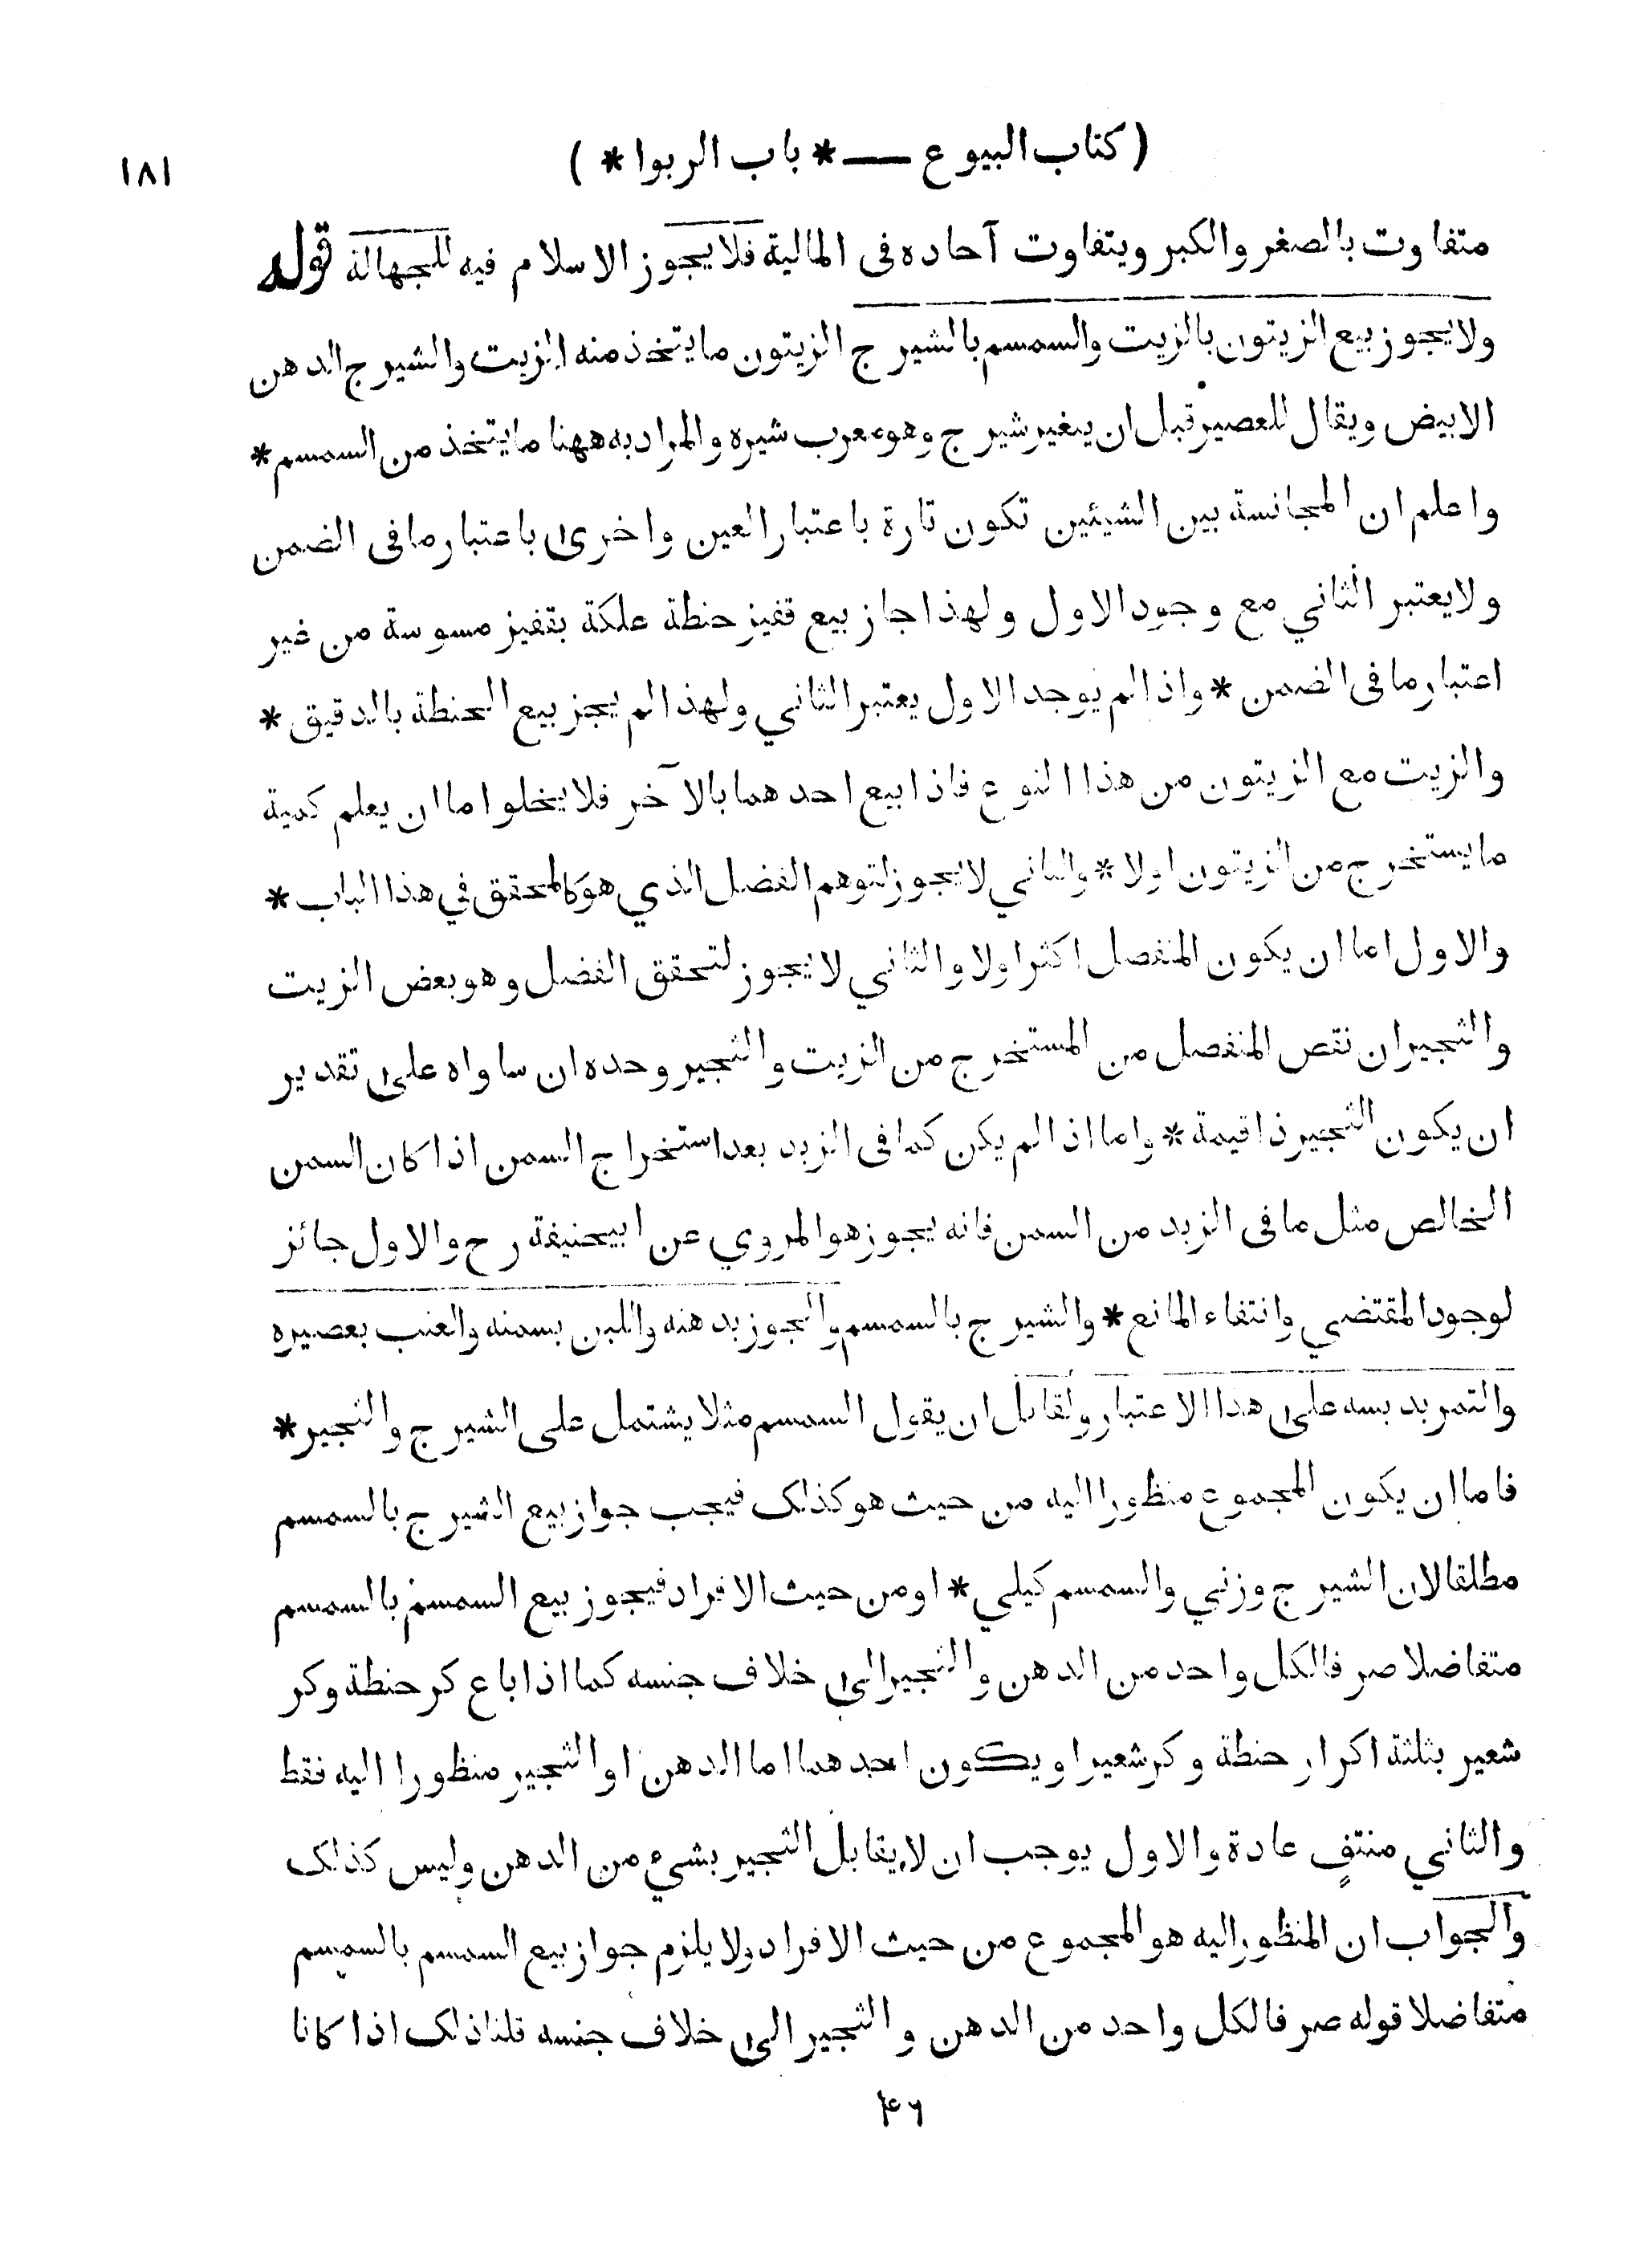 ( كتاب البيوع —— * باب الربوا * )
١٨١
متفاوت بالصغر والكبر ويتفاوت آحاده فى المالية فلايجوز الاسلام فيه للجهالة قوله
ولايجوز بيع الزيتون بالزيت والسمسم بالشيرج الزيتون مايتخذ منه الزيت والشيرج الدهن
الابيض ويقال للعصير قبل ان يتغير شيرج وهو معرب شيره والمراد به ههنا مايتخذ من السمسم *
واعلم ان المجانسة بين الشيئين تكون تارة باعتبار العين واخرى باعتبار مافى الضمن
ولايعتبر الثاني مع وجود الاول ولهذا جاز بيع قفيز حنطة علكة بقفيز مسوسة من غير
اعتبار مافى الضمن * واذا لم يوجد الاول يعتبر الثاني ولهذا لم يجز بيع الحنطة بالدقيق *
والزيت مع الزيتون من هذا النوع فاذا بيع احدهما بالآخر فلايخلوا ما ان يعلم كمية
مايستخرج من الزيتون اولا * والثاني لايجوز لتوهم الفضل الذي هو كالمحقق في هذا الباب *
والاول اما ان يكون المنفصل اكثر اولا والثاني لايجوز لتحقق الفضل وهو بعض الزيت
والثجير ان نقص المنفصل من المستخرج من الزيت والثجير وحده ان ساواه على تقدير
ان يكون الثجير ذا قيمة * واما اذا لم يكن كما فى الزبد بعد استخراج السمن اذا كان السمن
الخالص مثل مافى الزبد من السمن فانه يجوز هو المروي عن ابيحنيفة رح والاول جائز
لوجود المقتضي وانتفاء المانع * والشيرج بالسمسم والجوز بدهنه واللبن بسمنه والعنب بعصيره
والتمر بدبسه على هذا الاعتبار ولقائل ان يقول السمسم مثلا يشتمل على الشيرج والثجير *
فاما ان يكون المجموع منظورا اليه من حيث هو كذلك فيجب جواز بيع الشيرج بالسمسم
مطلقا لان الشيرج وزني والسمسم كيلي * او من حيث الافراد فيجوز بيع السمسم بالسمسم
متفاضلا صرفا لكل واحد من الدهن والثجير الى خلاف جنسه كما اذا باع كر حنطة وكر
شعير بثلثة اكرار حنطة وكر شعير او يكون احدهما اما الدهن او الثجير منظورا اليه فقط
والثاني منتفٍ عادة والاول يوجب ان لايقابل الثجير بشيء من الدهن وليس كذلك
والجواب ان المنظور اليه هو المجموع من حيث الافراد ولا يلزم جواز بيع السمسم بالسمسم
متفاضلا قوله صرفا لكل واحد من الدهن والثجير الى خلاف جنسه قلنا ذلك اذا كانا
۴۶